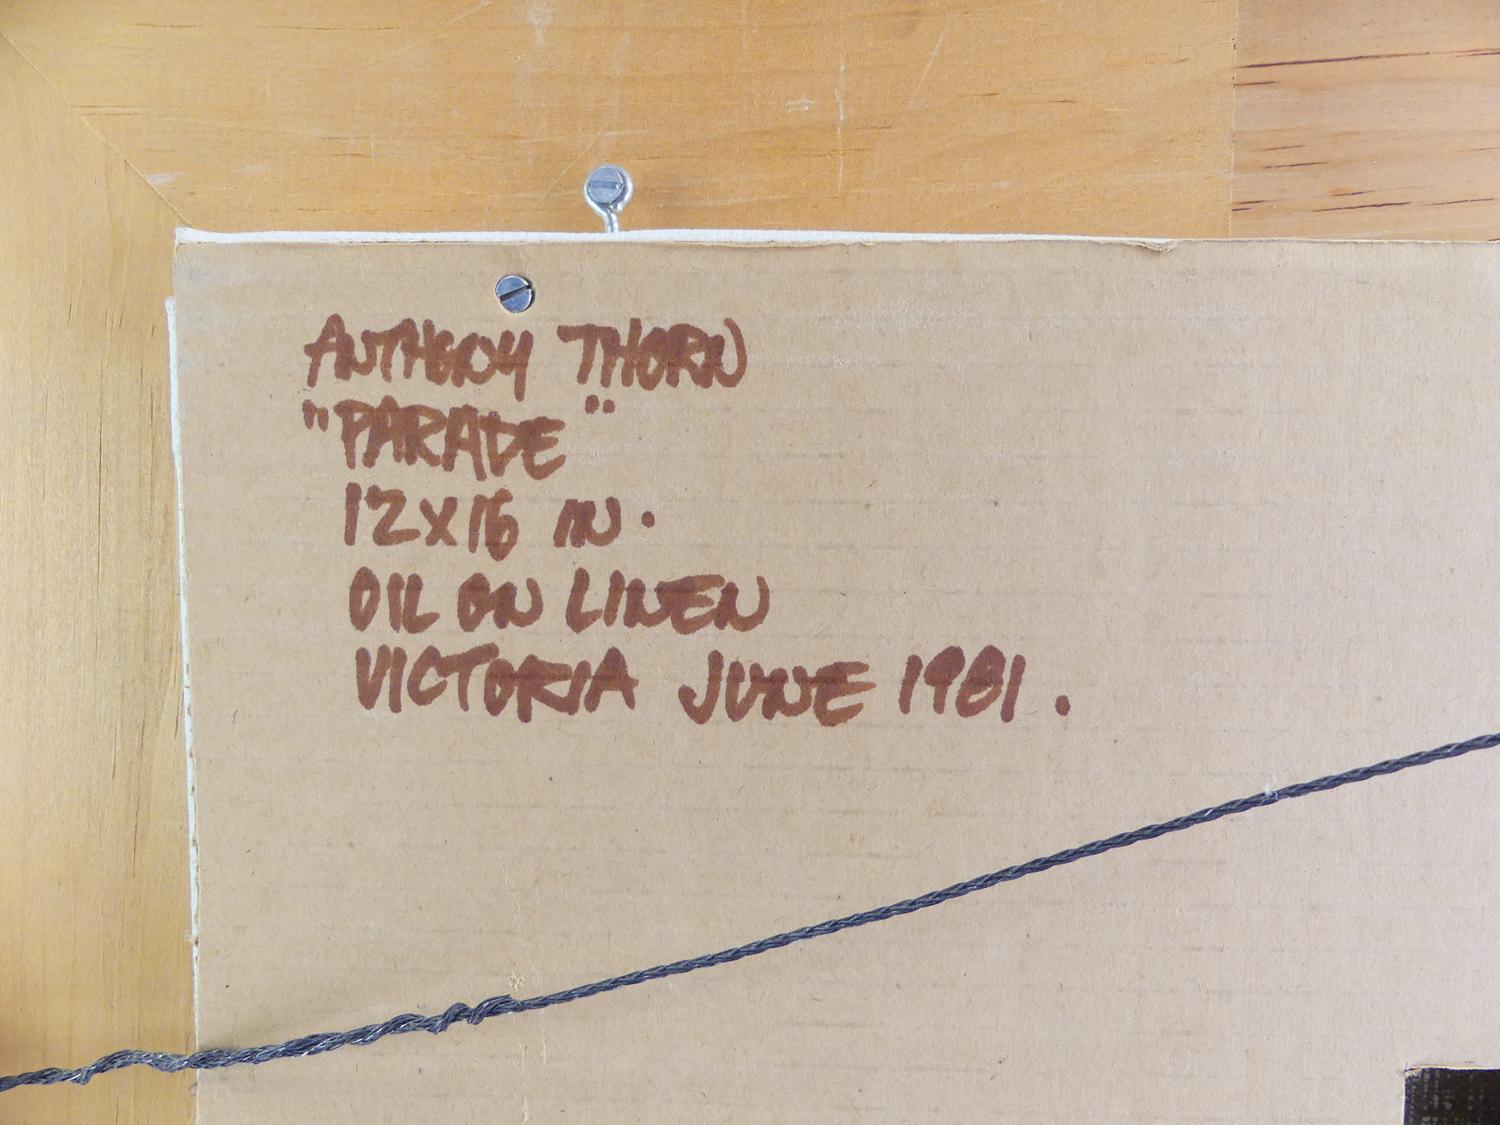 ANTHONY THORN
"PARADE"
12X16 IN.
OIL ON LINEN
VICTORIA JUNE 1981.